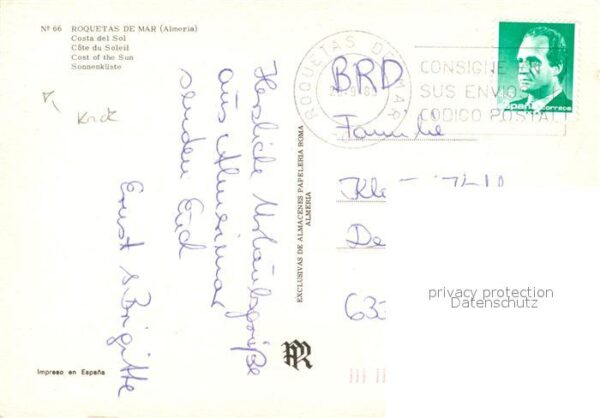 Nº 66 ROQUETAS DE MAR (Almeria)
Costa del Sol
Côte du Soleil
Cost of the Sun
Sonnenküste
Knick
Herzliche Urlaubsgrüße
aus Almerimar
senden Euch
Ernst & Brigitte
Impreso en España
EXCLUSIVAS DE ALMACENES PAPELERIA ROMA
ALMERIA
ROQUETAS DE MAR
CONSIGNE
SUS ENVIO
CODIGO POSTAL
España correos
BRD
Familie
Kle
De
633
privacy protection
Datenschutz